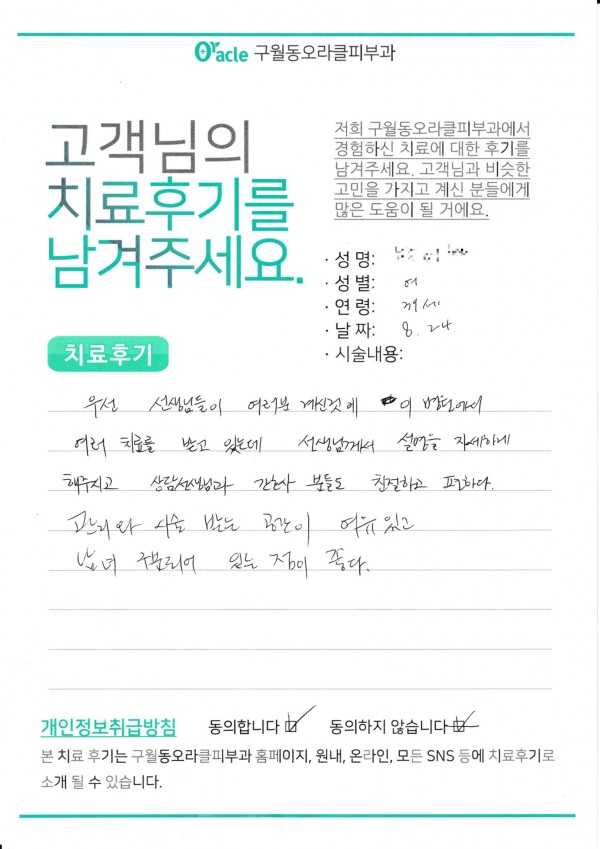 Oracle 구월동오라클피부과
고객님의
치료후기를
남겨주세요.
저희 구월동오라클피부과에서
경험하신 치료에 대한 후기를
남겨주세요. 고객님과 비슷한
고민을 가지고 계신 분들에게
많은 도움이 될 거에요.
· 성 명:
· 성 별: 여
· 연 령: 세
· 날 짜: 8. 24
· 시술내용:
치료후기
우선 선생님들이 여러분 계신것에 이 병원에서
여러 치료를 받고 있는데 선생님께서 설명을 자세하게
해주시고 상담선생님과 간호사 분들도 친절하고 편하다.
관리와 시술 받는 공간이 여유있고
남녀 구분되어 있는 점이 좋다.
개인정보취급방침 동의합니다 동의하지 않습니다
본 치료 후기는 구월동오라클피부과 홈페이지, 원내, 온라인, 모든 SNS 등에 치료후기로
소개 될 수 있습니다.